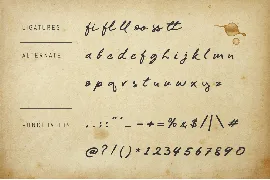 LIGATURES
fi fl ll oo ss tt
ALTERNATE
a b c d e f g h i j k l m n
o p q r s t u v w x y z
PUNCTUATION
. , : ; " ' ^ - – + = % & $ / | \ #
@ ? ! ( ) * 1 2 3 4 5 6 7 8 9 0